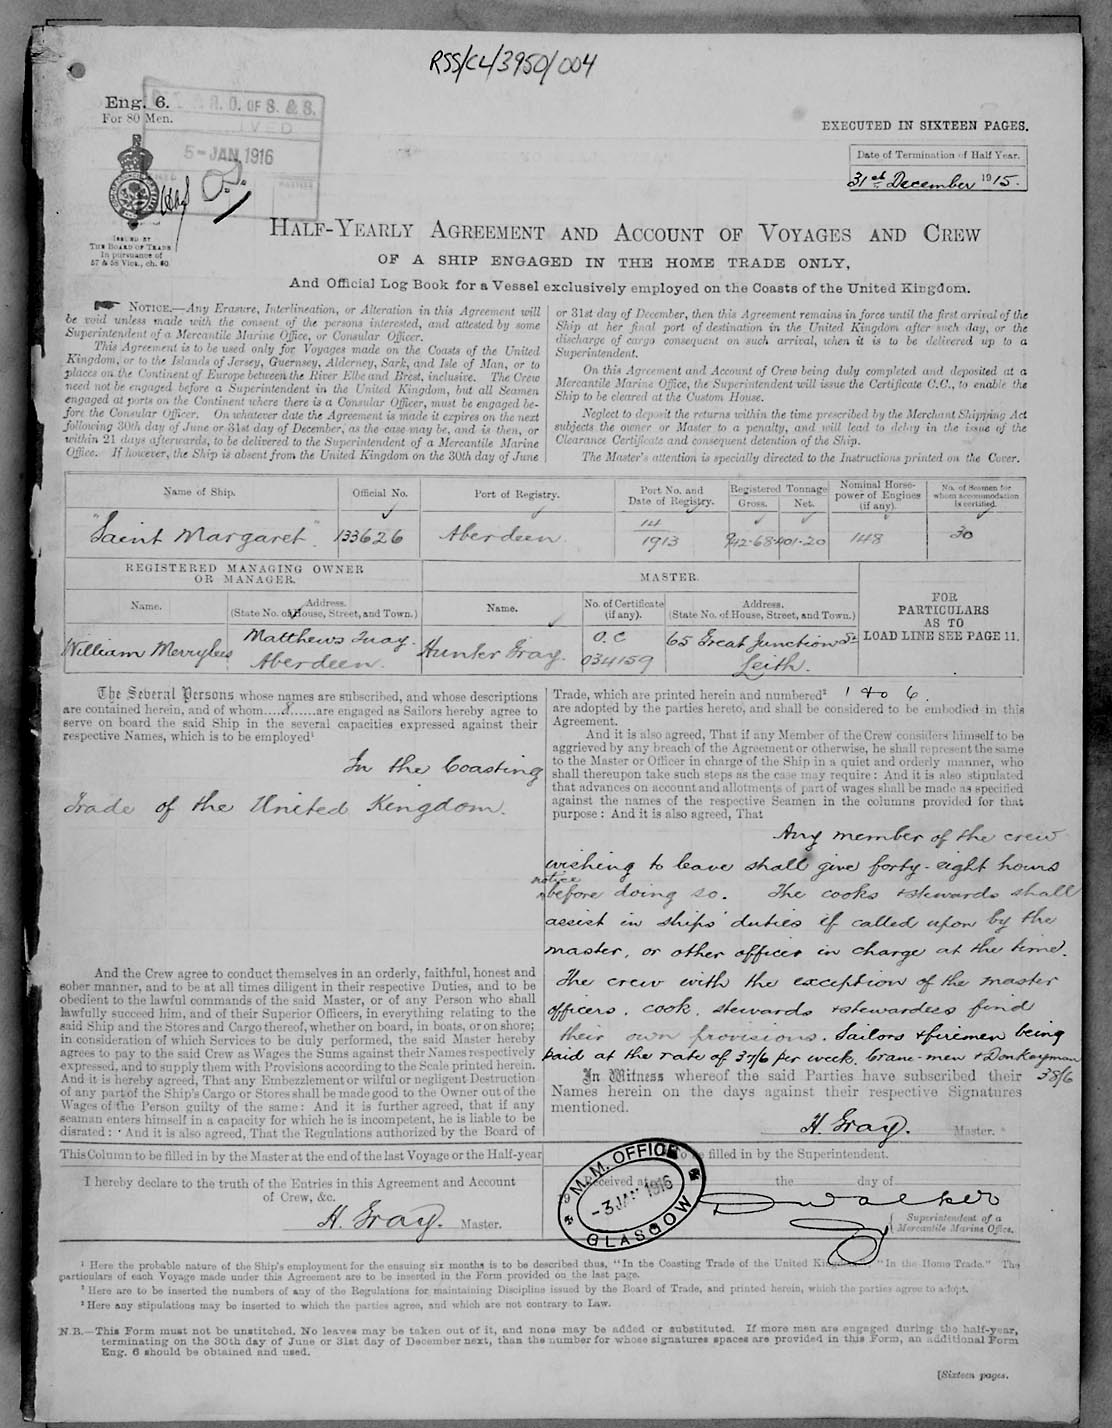 RSS/CL/3950/004
Eng. 6.
For 80 Men.
R. O. OF S. & S.
5-JAN 1916
ISSUED BY
THE BOARD OF TRADE
In pursuance of
57 & 58 Vict., ch. 60.
EXECUTED IN SIXTEEN PAGES.
Date of Termination of Half Year.
31st December 1915.
HALF-YEARLY AGREEMENT AND ACCOUNT OF VOYAGES AND CREW
OF A SHIP ENGAGED IN THE HOME TRADE ONLY,
And Official Log Book for a Vessel exclusively employed on the Coasts of the United Kingdom.
NOTICE.—Any Erasure, Interlineation, or Alteration in this Agreement will
be void unless made with the consent of the persons interested, and attested by some
Superintendent of a Mercantile Marine Office, or Consular Officer.
This Agreement is to be used only for Voyages made on the Coasts of the United
Kingdom, or to the Islands of Jersey, Guernsey, Alderney, Sark, and Isle of Man, or to
places on the Continent of Europe between the River Elbe and Brest, inclusive. The Crew
need not be engaged before a Superintendent in the United Kingdom, but all Seamen
engaged at ports on the Continent where there is a Consular Officer, must be engaged be-
fore the Consular Officer. On whatever date the Agreement is made it expires on the next
following 30th day of June or 31st day of December, as the case may be, and is then, or
within 21 days afterwards, to be delivered to the Superintendent of a Mercantile Marine
Office. If however, the Ship is absent from the United Kingdom on the 30th day of June
or 31st day of December, then this Agreement remains in force until the first arrival of the
Ship at her final port of destination in the United Kingdom after such day, or the
discharge of cargo consequent on such arrival, when it is to be delivered up to a
Superintendent.
On this Agreement and Account of Crew being duly completed and deposited at a
Mercantile Marine Office, the Superintendent will issue the Certificate C.C., to enable the
Ship to be cleared at the Custom House.
Neglect to deposit the returns within the time prescribed by the Merchant Shipping Act
subjects the owner or Master to a penalty, and will lead to delay in the issue of the
Clearance Certificate and consequent detention of the Ship.
The Master's attention is specially directed to the Instructions printed on the Cover.
Name of Ship. Official No. Port of Registry. Port No. and Date of Registry. Registered Tonnage Gross. Net. Nominal Horse-power of Engines (if any). No. of Seamen for whom accommodation is certified.
"Saint Margaret". 133626 Aberdeen. 14/1913 942·68 401·20 148 30
REGISTERED MANAGING OWNER
OR MANAGER.
MASTER.
Name. Address. (State No. of House, Street, and Town.) Name. No. of Certificate (if any). Address. (State No. of House, Street, and Town.)
FOR
PARTICULARS
AS TO
LOAD LINE SEE PAGE 11.
William Merrylees Matthews Quay. Aberdeen. Hunter Gray. O.C 034159 65 Great Junction St Leith.
The Several Persons whose names are subscribed, and whose descriptions
are contained herein, and of whom....8......are engaged as Sailors hereby agree to
serve on board the said Ship in the several capacities expressed against their
respective Names, which is to be employed¹
In the Coasting
Trade of the United Kingdom.
And the Crew agree to conduct themselves in an orderly, faithful, honest and
sober manner, and to be at all times diligent in their respective Duties, and to be
obedient to the lawful commands of the said Master, or of any Person who shall
lawfully succeed him, and of their Superior Officers, in everything relating to the
said Ship and the Stores and Cargo thereof, whether on board, in boats, or on shore;
in consideration of which Services to be duly performed, the said Master hereby
agrees to pay to the said Crew as Wages the Sums against their Names respectively
expressed, and to supply them with Provisions according to the Scale printed herein.
And it is hereby agreed, That any Embezzlement or wilful or negligent Destruction
of any part of the Ship's Cargo or Stores shall be made good to the Owner out of the
Wages of the Person guilty of the same: And it is further agreed, that if any
seaman enters himself in a capacity for which he is incompetent, he is liable to be
disrated: And it is also agreed, That the Regulations authorized by the Board of
Trade, which are printed herein and numbered² 1 to 6.
are adopted by the parties hereto, and shall be considered to be embodied in this
Agreement.
And it is also agreed, That if any Member of the Crew considers himself to be
aggrieved by any breach of the Agreement or otherwise, he shall represent the same
to the Master or Officer in charge of the Ship in a quiet and orderly manner, who
shall thereupon take such steps as the case may require: And it is also stipulated
that advances on account and allotments of part of wages shall be made as specified
against the names of the respective Seamen in the columns provided for that
purpose: And it is also agreed, That
Any member of the crew
wishing to leave shall give forty-eight hours
notice
before doing so. The cooks + stewards shall
assist in ships' duties if called upon by the
master, or other officer in charge at the time.
The crew with the exception of the master
officers, cook, stewards + stewardess find
their own provisions. Sailors + firemen being
paid at the rate of 37/6 per week. Crane-men + Donkeyman
38/6
In Witness whereof the said Parties have subscribed their
Names herein on the days against their respective Signatures
mentioned.
H. Gray. Master.
This Column to be filled in by the Master at the end of the last Voyage or the Half-year
I hereby declare to the truth of the Entries in this Agreement and Account
of Crew, &c.
H. Gray. Master.
To be filled in by the Superintendent.
Received at the day of
M.M. OFFICE
-3 JAN 1916
GLASGOW
D Walker
Superintendent of a
Mercantile Marine Office.
¹ Here the probable nature of the Ship's employment for the ensuing six months is to be described thus, "In the Coasting Trade of the United Kingdom." "In the Home Trade." The
particulars of each Voyage made under this Agreement are to be inserted in the Form provided on the last page.
² Here are to be inserted the numbers of any of the Regulations for maintaining Discipline issued by the Board of Trade, and printed herein, which the parties agree to adopt.
³ Here any stipulations may be inserted to which the parties agree, and which are not contrary to Law.
N.B.—This Form must not be unstitched. No leaves may be taken out of it, and none may be added or substituted. If more men are engaged during the half-year,
terminating on the 30th day of June or 31st day of December next, than the number for whose signatures spaces are provided in this Form, an additional Form
Eng. 6 should be obtained and used.
[Sixteen pages.